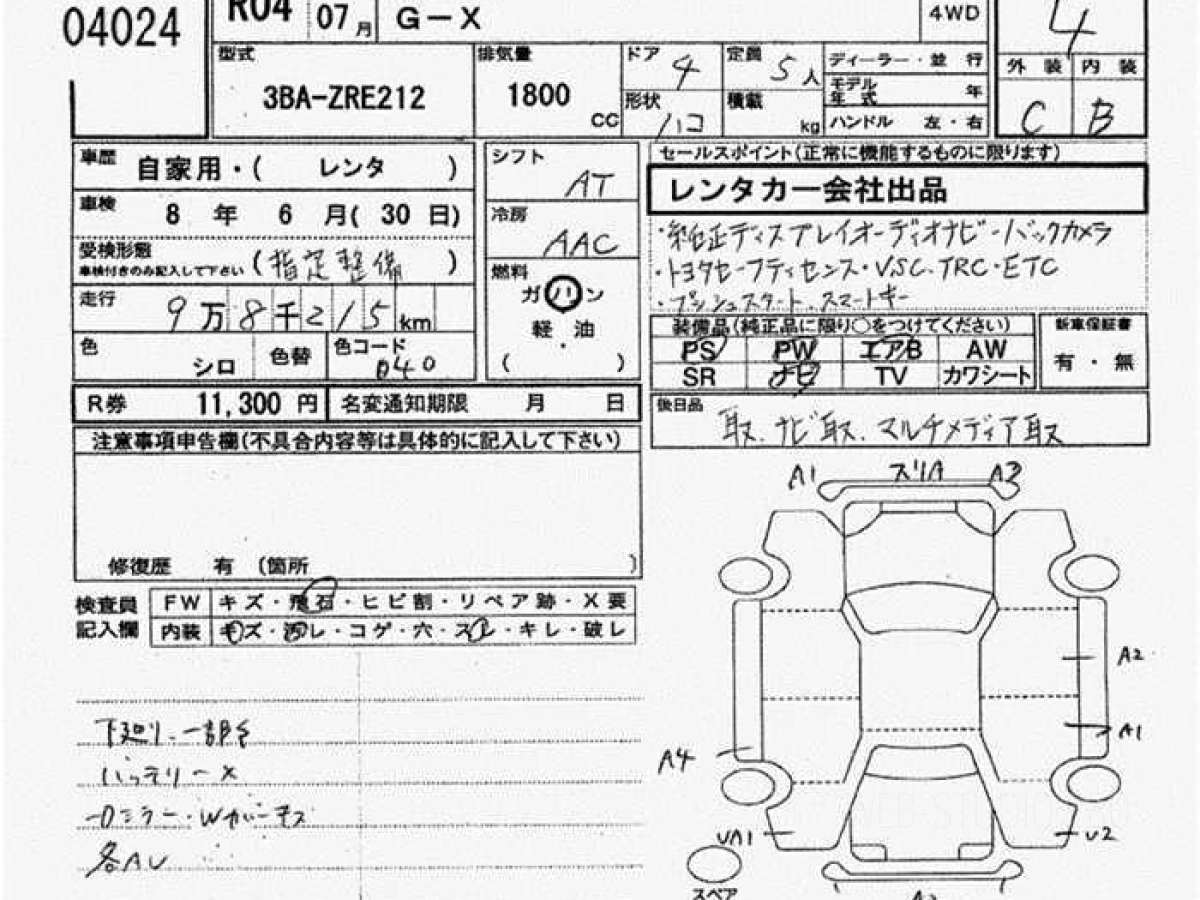 04024
R04 07月 G-X 4WD 4
型式 3BA-ZRE212
排気量 1800 CC
ドア 4
定員 5人
形状 ハコ
積載 kg
ディーラー・並行
モデル年式 年
ハンドル 左・右
外装 内装
C B
車歴 自家用・( レンタ )
車検 8年 6月( 30日)
受検形態
車検付きのみ記入して下さい (指定整備 )
走行 9万8千215km
色 シロ 色替 色コード 040
シフト AT
冷房 AAC
燃料 ガソリン
軽・油
( )
セールスポイント(正常に機能するものに限ります)
レンタカー会社出品
・純正ディスプレイオーディオナビ・バックカメラ
・トヨタセーフティセンス・VSC・TRC・ETC
・プッシュスタート・スマートキー
装備品(純正品に限り○をつけてください)
PS PW エアB AW
SR ナビ TV カワシート
新車保証書
有・無
R券 11,300円 名変通知期限 月 日
後日品 取、ナビ取、マルチメディア取
注意事項申告欄(不具合内容等は具体的に記入して下さい)
修復歴 有 (箇所 )
検査員記入欄
FW キズ・飛石・ヒビ割・リペア跡・X要
内装 キズ・汚レ・コゲ・穴・スレ・キレ・破レ
下廻り一部サ
バッテリーX
A1 スリA A3
A2
A1
A4
UA1 U2
スペア